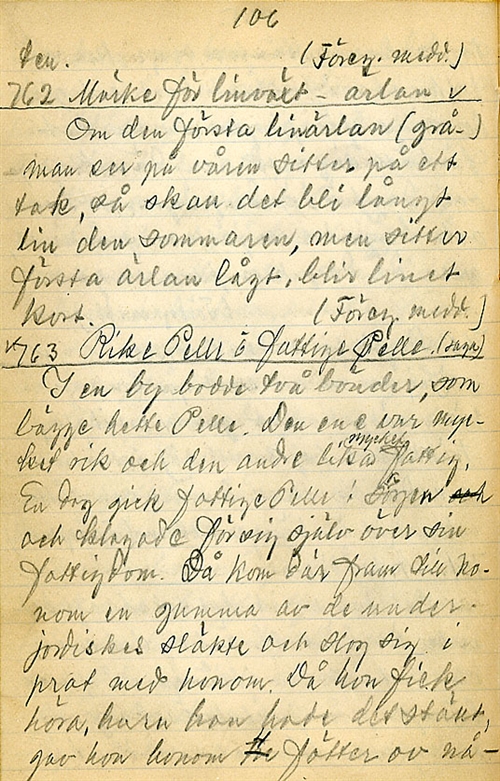 106
ten. (Föreg. medd.)
762 Märke för linväxt - ärlan v
Om den första linärlan (grå-)
man ser på våren sitter på ett
tak, så skall det bli långt
lin den sommaren, men sitter
första ärlan lågt, blir linet
kort. (Föreg. medd.)
v 763 Rike Pelle o fattige Pelle. (saga)
I en by bodde två bönder, som
bägge hette Pelle. Den ene var myc-
ket rik och den andre lika mycket fattig.
En dag gick fattige Pelle i
och klagade för sig själv över sin
fattigdom. Då kom där fram till ho-
nom en gumma av de under-
jordiskes släkte och slog sig i
prat med honom. Då hon fick
höra, huru han hade det ställt,
gav hon honom tre fötter av nå-